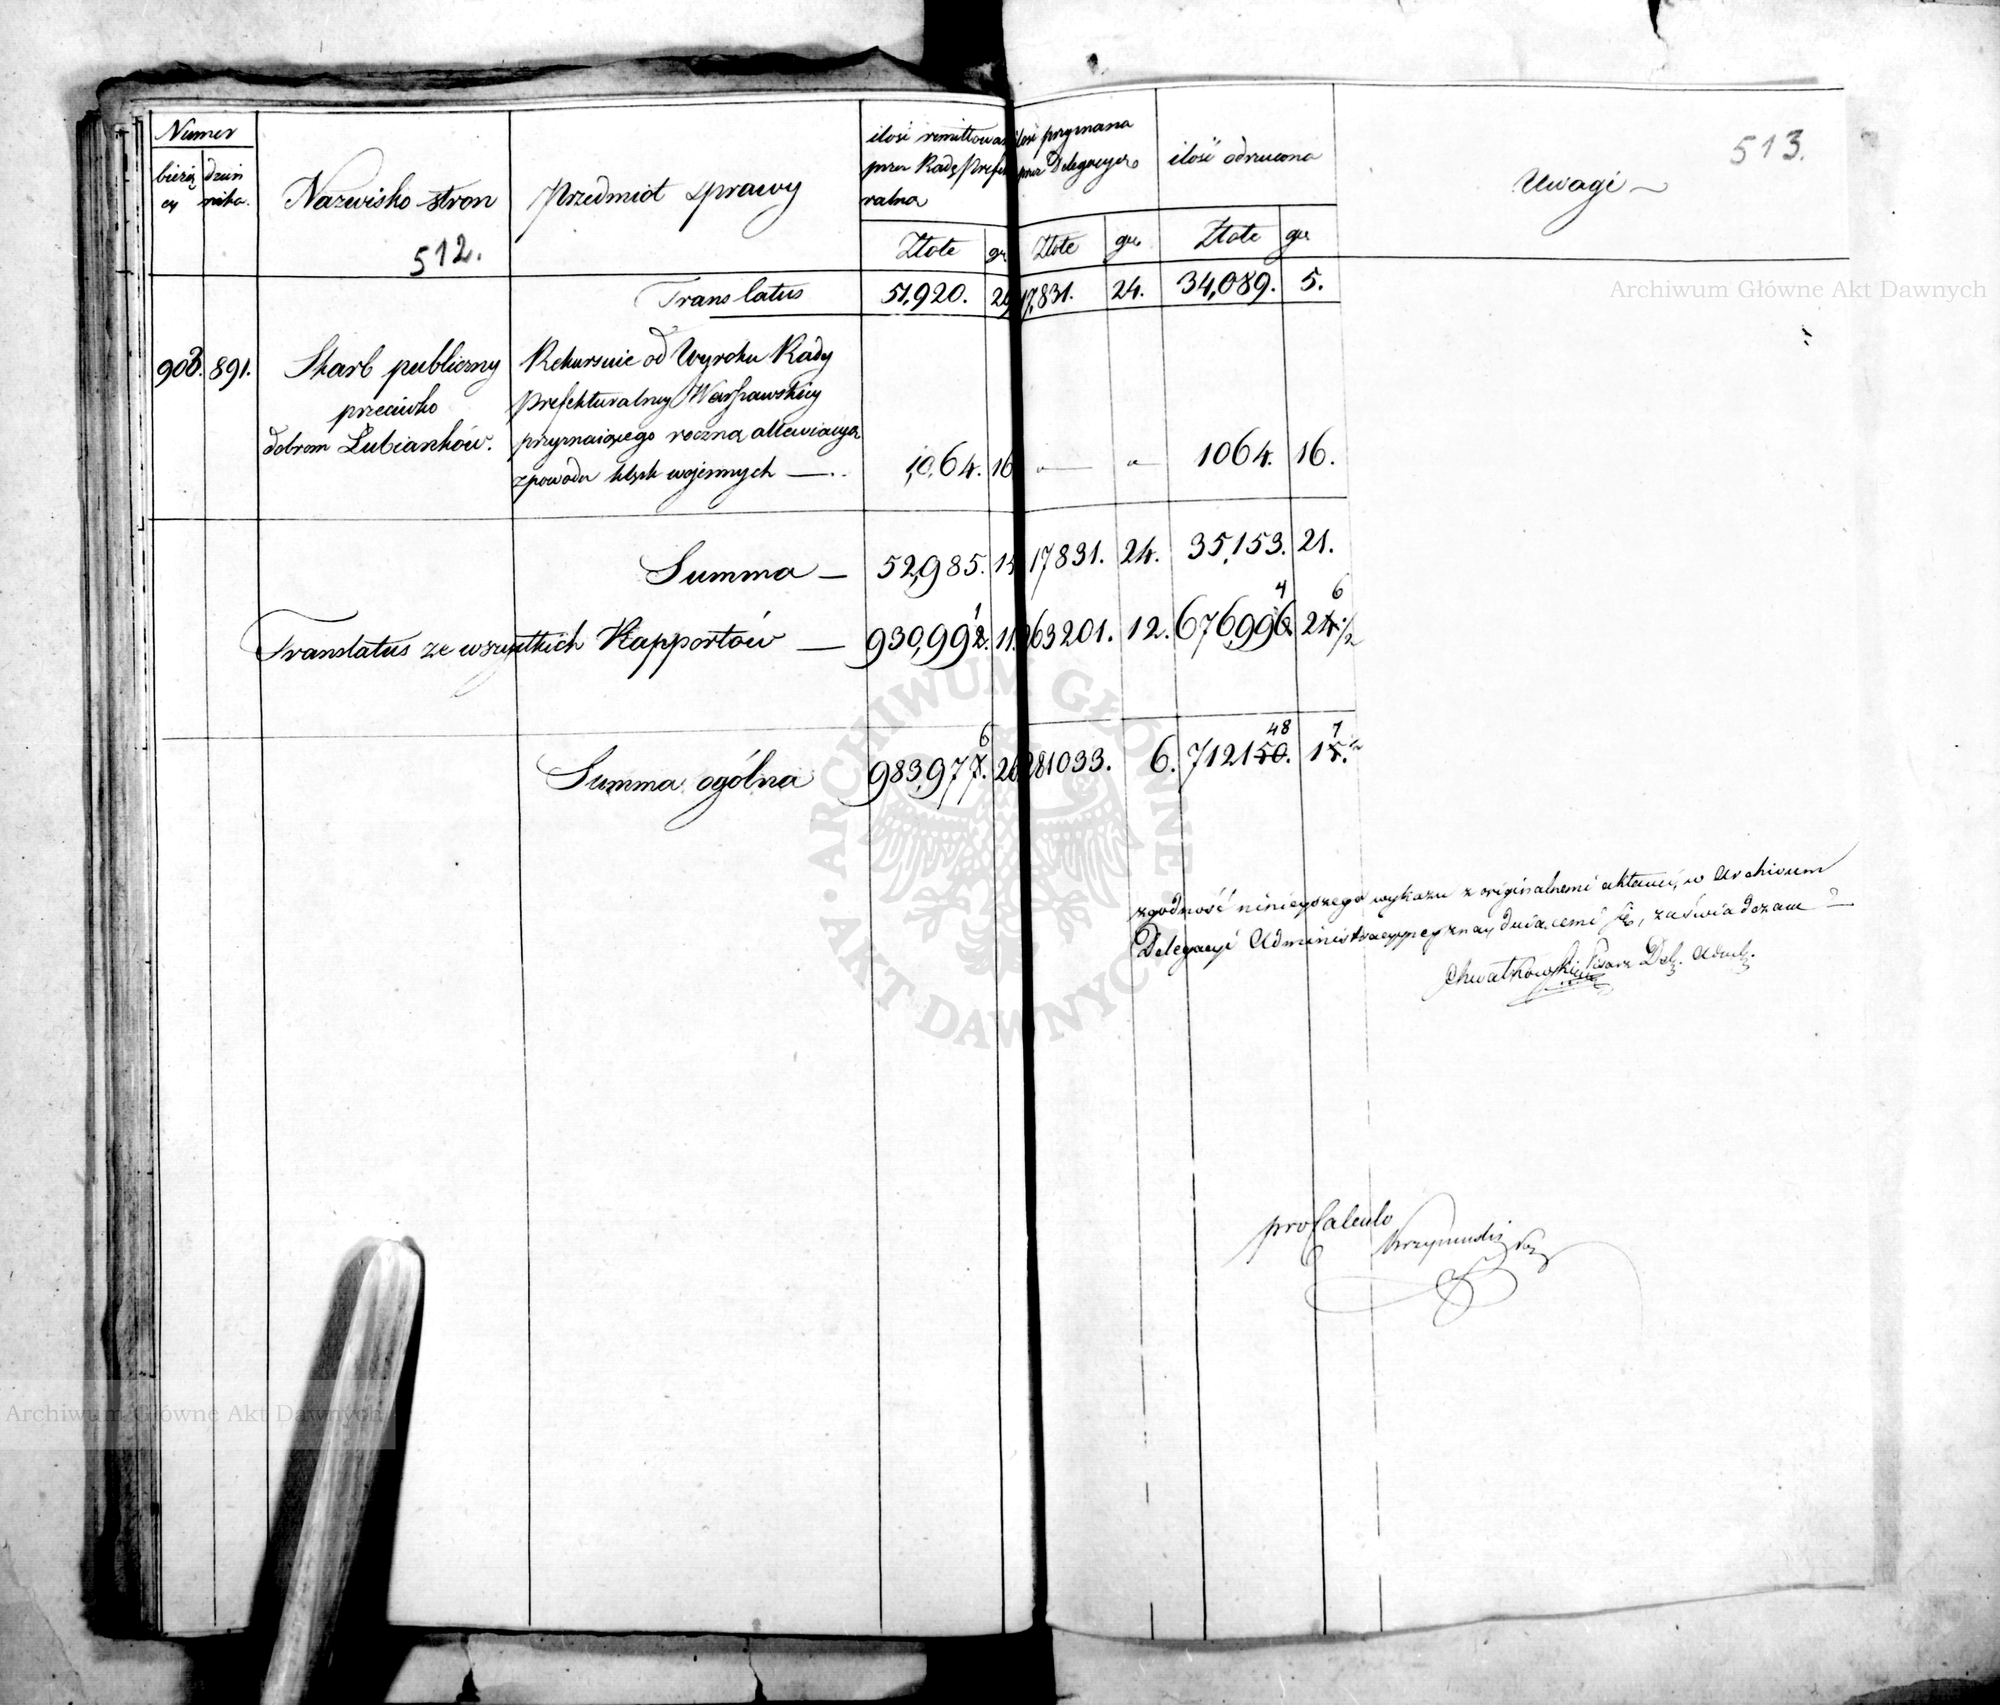 Numer
bieżą
cy
dzien
nika.
Nazwisko stron
512.
Przedmiot sprawy
ilość remittowa
przez Radę Prefek
ralną
Złote
gr
ilość przyznana
przez Delegacyą
Złote
gr.
ilość odrzucona
Złote
gr
Uwagi
513.
Translatus 51,920. 29 17,831. 24. 34,089. 5.
903. 891. Skarb publiczny
przeciwko
dobrom Lubianków.
Rekursuie od Wyroku Rady
Prefekturalney Warszawskiey
przyznaiącego roczną allewiacyą
z powodu klęsk woiennych —
1,064. 16 — „ 1064. 16.
Summa — 52,985. 15 17831. 24. 35,153. 21.
Translatus ze wszystkich Rapportów — 930,992. 1 11. 263201. 12. 676,996 4 24 6 ½
Summa ogólna 983,977. 6 26 281033. 6. 712150. 48 15. 7 ½
zgodność ninieyszego wykazu z originalnemi aktami, w Archivum
Delegacyi Administracyyney znayduiącemi się, zaświadczam
Chwatkowski Pisarz Del. Adm.
pro Calculo
ARCHIWUM GŁÓWNE AKT DAWNYCH
Archiwum Główne Akt Dawnych
Archiwum Główne Akt Dawnych